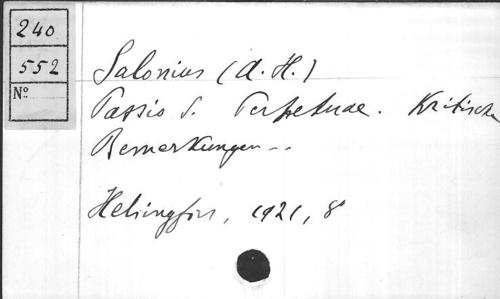 240
552
Nº
Salonius (A. H.)
Passio S. Perpetuae. Kritische
Bemerkungen..
Helsingfors, 1921, 8°